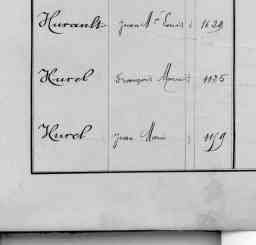 Hurault Jean Mie Louis 1629
Hurel François Marie 1125
Hurel Jean Marie 1159